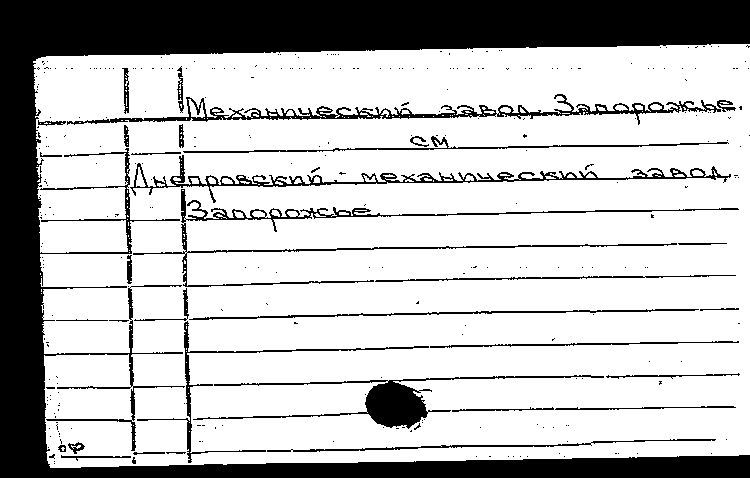 Механический завод. Запорожье.
см
Днепровский механический завод.
Запорожье.
оф